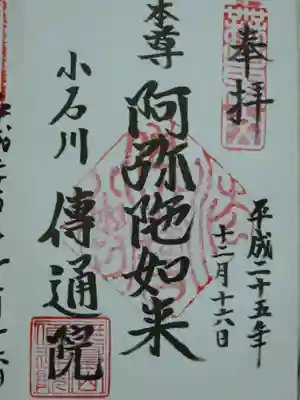 奉拝
平成二十五年
十一月十六日
本尊
阿弥陀如来
小石川
傳通院